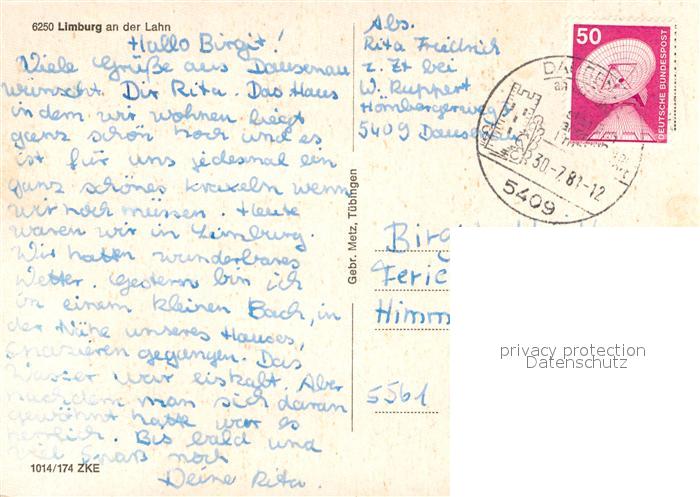 6250 Limburg an der Lahn
Hallo Birgit!
Viele Grüße aus Dausenau
wünscht Dir Rita. Das Haus
in dem wir wohnen liegt
ganz schön hoch und es
ist für uns jedesmal ein
ganz schönes kraxeln wenn
wir hoch müssen. Heute
waren wir in Limburg.
Wir hatten wunderbares
Wetter. Gestern bin ich
in einem kleinen Bach, in
der Nähe unseres Hauses,
spazieren gegangen. Das
Wasser war eiskalt. Aber
nachdem man sich daran
gewöhnt hatte war es
herrlich. Bis bald und
viel Spaß noch
Deine Rita.
1014/174 ZKE
Gebr. Metz, Tübingen
Abs.
Rita Friedrich
z. Zt bei
W. Ruppert
5409 Dause
50
DEUTSCHE BUNDESPOST
30.-7.81-12
5409
Birg
Ferie
Himm
5561
privacy protection
Datenschutz